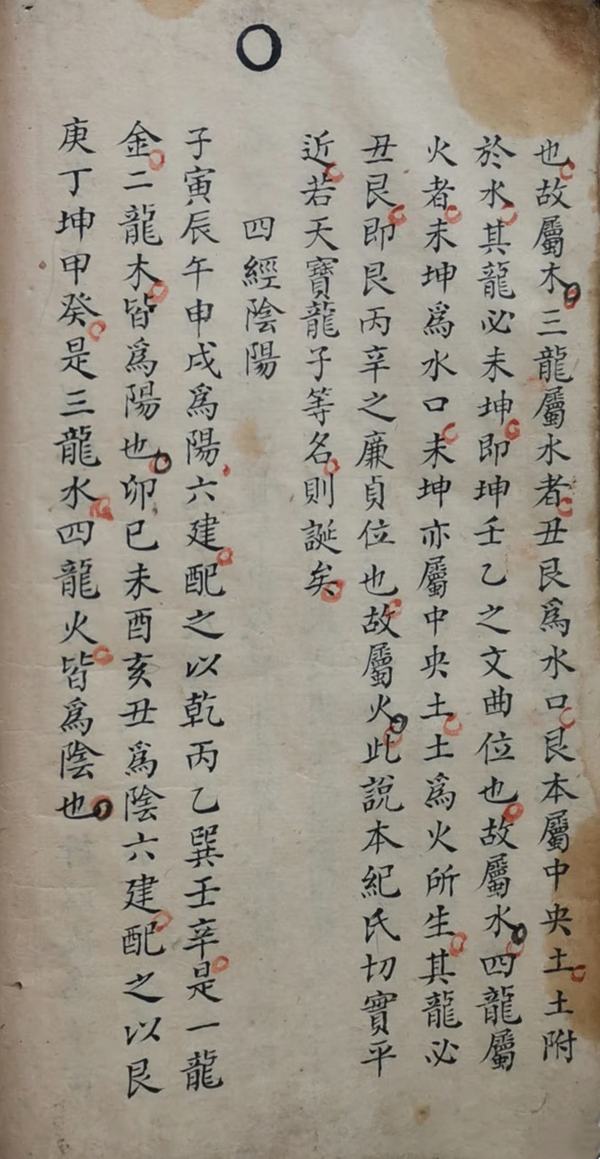 也故屬木三龍屬水者丑艮爲水口艮本屬中央土土附
於水其龍必未坤即坤壬乙之文曲位也故屬水四龍屬
火者未坤爲水口未坤亦屬中央土土爲火所生其龍必
丑艮即艮丙辛之廉貞位也故屬火此說本紀氏切實平
近若天寶龍子等名則誕矣
四經陰陽
子寅辰午申戌爲陽六建配之以乾丙乙巽壬辛是一龍
金二龍木皆爲陽也卯巳未酉亥丑爲陰六建配之以艮
庚丁坤甲癸是三龍水四龍火皆爲陰也